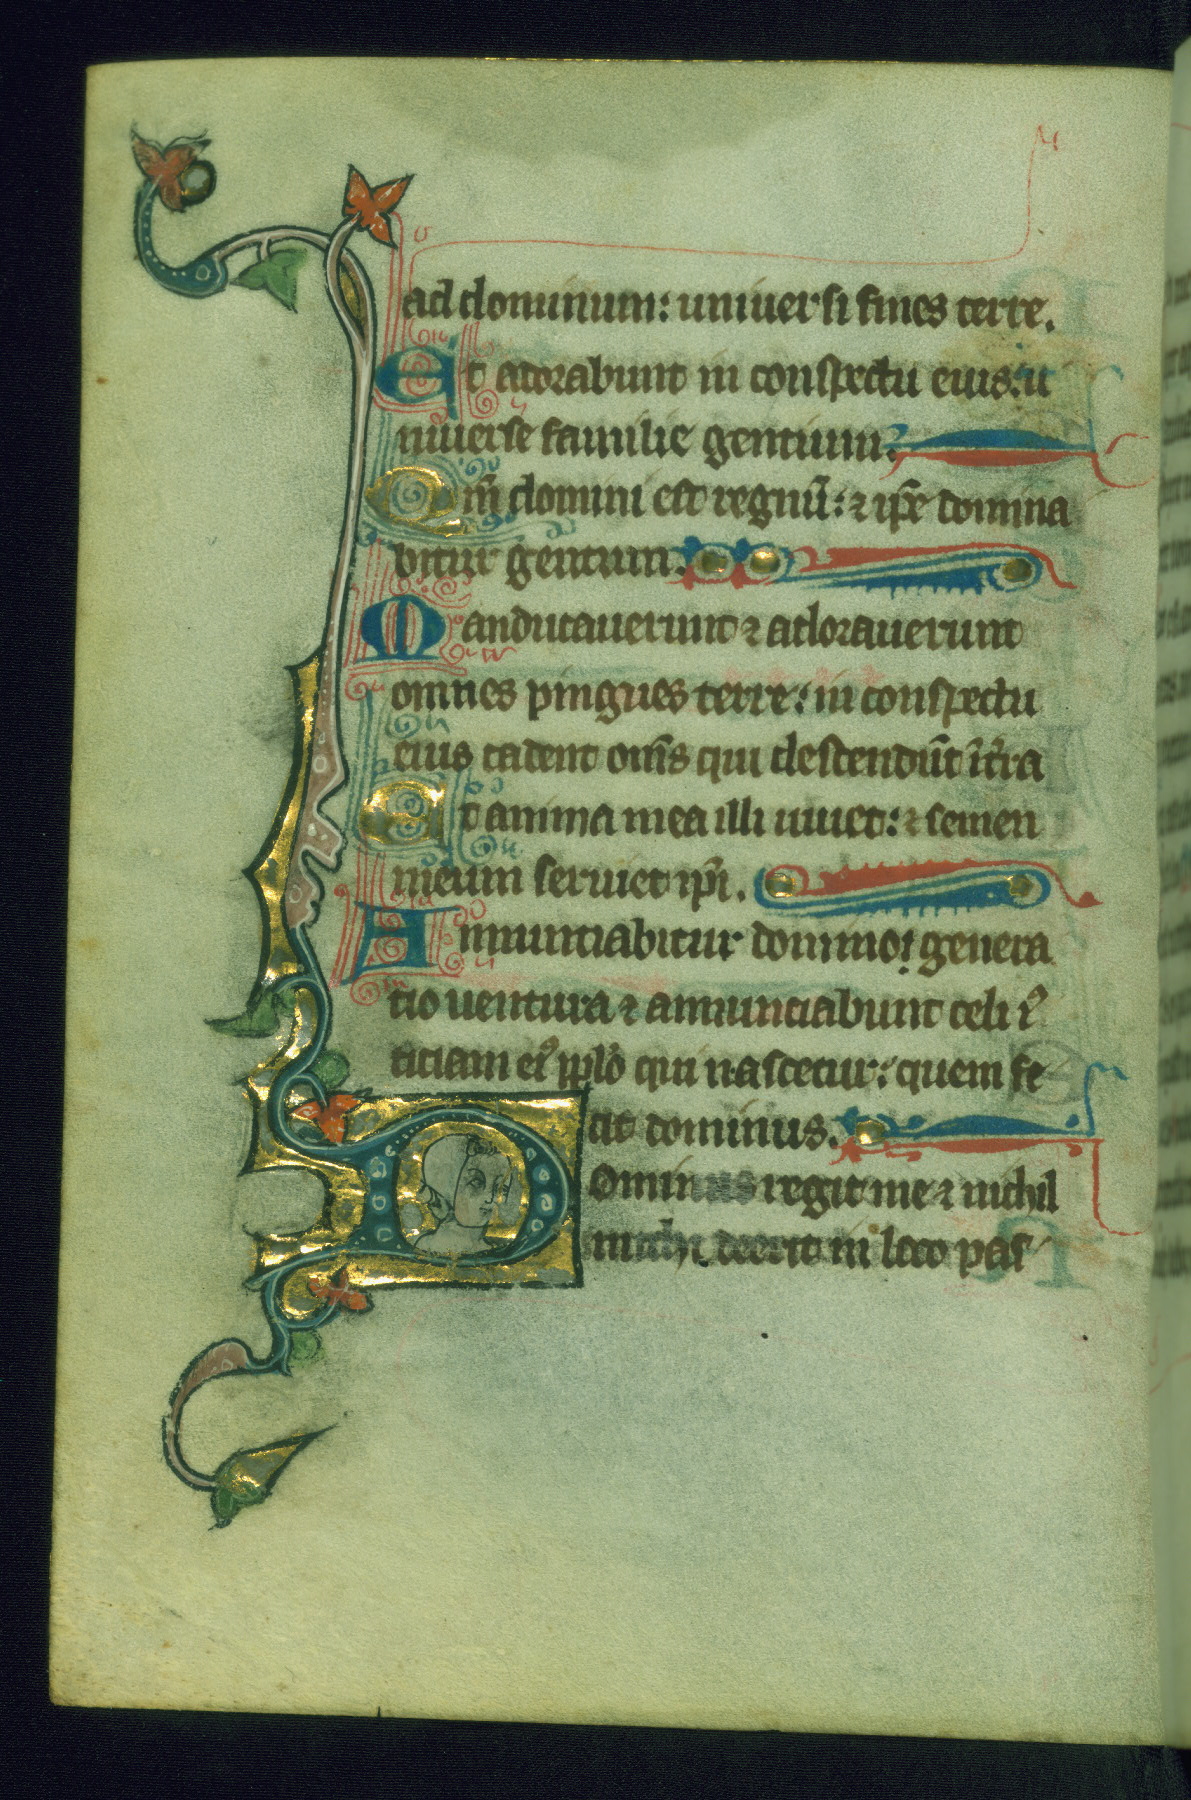 ad dominum: uniuersi fines terre.
Et adorabunt in conspectu eius: u
niuerse familie gentium:
Qm̄ domini est regnū: ⁊ ip̄e domina
bitur gentium.
Manducauerunt ⁊ adorauerunt
omnes pingues terre: in conspectu
eius cadent om̄s qui descendūt ī t̄ra
Et anima mea illi uiuet: ⁊ semen
meum seruiet ip̄i.
Annuntiabitur domino: genera
tio uentura ⁊ annunciabunt celi iꝰ
ticiam eiꝰ pplo qui nascetur: quem fe
cit dominus.
Dominus regit me ⁊ nichil
michi deerit in loco pas